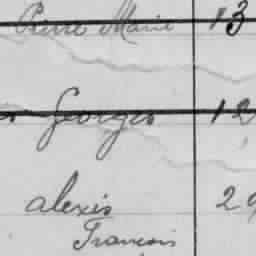 Pierre Marie 13
Georges 12
alexis 29
Francois